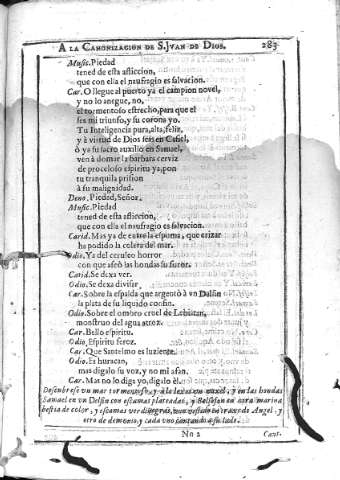 A LA CANONIZACION DE S. JVAN DE DIOS. 283
Music. Piedad
tened de esta afliccion,
que con ella el naufragio es salvacion.
Car. O llegue al puerto ya el campion novel,
y no lo anegue, no,
el tormentoso estrecho, para que el
ses mi triunfo, y su corona yo.
Tu Inteligencia pura, alta, feliz,
y à virtud de Dios
ò ya su sacro auxilio en Samuel,
ven à domar la barbara cerviz
de proceloso espiritu ya, pon
tu tranquila prision
à su malignidad.
Demo. Piedad, Señor.
Music. Piedad
tened de esta afliccion,
que con ella el naufragio es salvacion.
Carid. Mas ya de entre la espuma, que erizar
ha podido la colera del mar.
Odio. Ya del ceruleo horror
con que aseò las hondas su furor.
Carid. Se dexa ver.
Odio. Se dexa divisar
Car. Sobre la espalda que argentò à vn Delfin
la plata de su liquido confin.
Odio. Sobre el ombro cruel de Lebiatan,
monstruo del agua atroz.
Car. Bello espiritu.
Odio. Espiritu feroz.
Car. Que Santelmo es luziente.
Odio. Es huracan,
mas digalo su voz, y no mi afan.
Car. Mas no lo diga yo, digalo èl.
Descubrese vn mar tormentoso, y en las hondas
Samuel en vn Delfin con escamas plateadas, y en otra marina
bestia de color, y escamas verdinegras, de Angel, y
otro de demonio, y cada vno à su lado.
Nn 2 Cant.